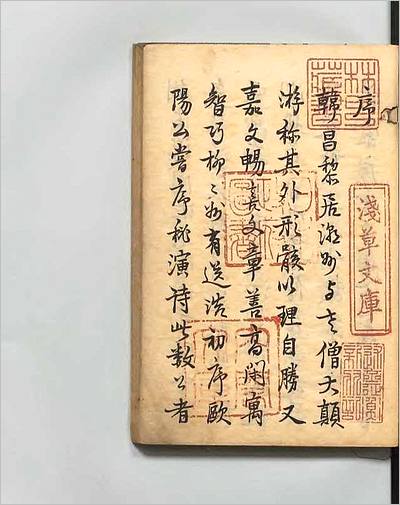 序
韓昌黎居潮州与老僧大顛
游称其外形骸以理自勝又
嘉文暢喜文章善高閑寓
智巧柳〻州有送浩初序歐
陽公嘗序秘演詩此数公者
淺草文庫